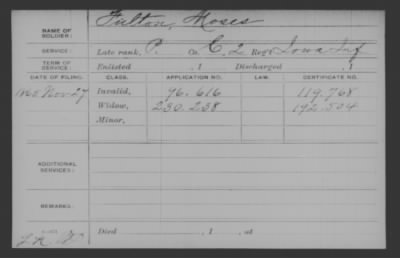 NAME OF SOLDIER: Fulton, Moses
SERVICE: Late rank, P. Co. C, 2 Reg't Iowa Inf
TERM OF SERVICE: Enlisted , 1 Discharged , 1
DATE OF FILING. CLASS. APPLICATION NO. LAW. CERTIFICATE NO.
Nov 27 Invalid, 96.616 119.768
Widow, 230.238 192.504
Minor,
ADDITIONAL SERVICES:
REMARKS:
Died , 1 , at